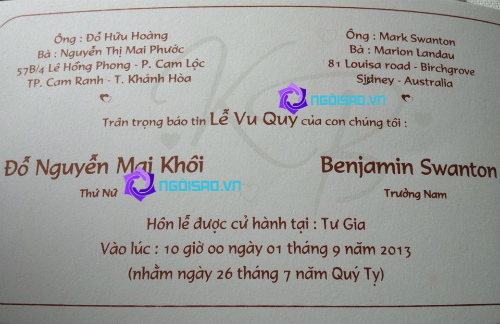 Ông : Đỗ Hữu Hoàng
Bà : Nguyễn Thị Mai Phước
57B/4 Lê Hồng Phong - P. Cam Lộc
TP. Cam Ranh - T. Khánh Hòa
Ông : Mark Swanton
Bà : Marion Landau
81 Louisa road - Birchgrove
Sidney - Australia
NGÔISAO.VN
Trân trọng báo tin Lễ Vu Quy của con chúng tôi :
Đỗ Nguyễn Mai Khôi
Thứ Nữ
Benjamin Swanton
Trưởng Nam
NGÔISAO.VN
Hôn lễ được cử hành tại : Tư Gia
Vào lúc : 10 giờ 00 ngày 01 tháng 9 năm 2013
(nhằm ngày 26 tháng 7 năm Quý Tỵ)